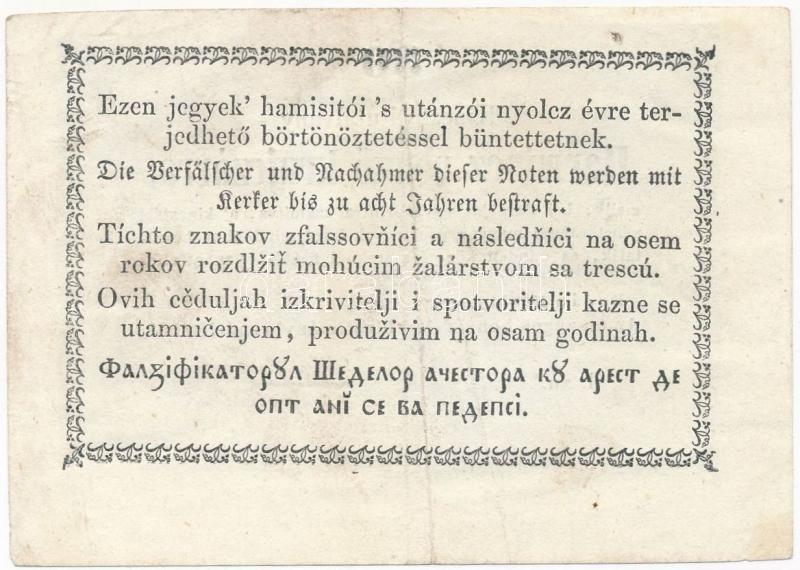 Ezen jegyek’ hamisitói ’s utánzói nyolcz évre ter-
jedhető börtönöztetéssel büntettetnek.
Die Verfälscher und Nachahmer dieser Noten werden mit
Kerker bis zu acht Jahren bestraft.
Tíchto znakov zfalssovňíci a následňíci na osem
rokov rozdlžiť mohúcim žalárstvom sa trescú.
Ovih cěduljah izkrivitelji i spotvoritelji kazne se
utamničenjem, produživim na osam godinah.
Фалзіфікаторꙋл Шеделор ачестора кꙋ арест де
опт анĭ се ва педепсі.